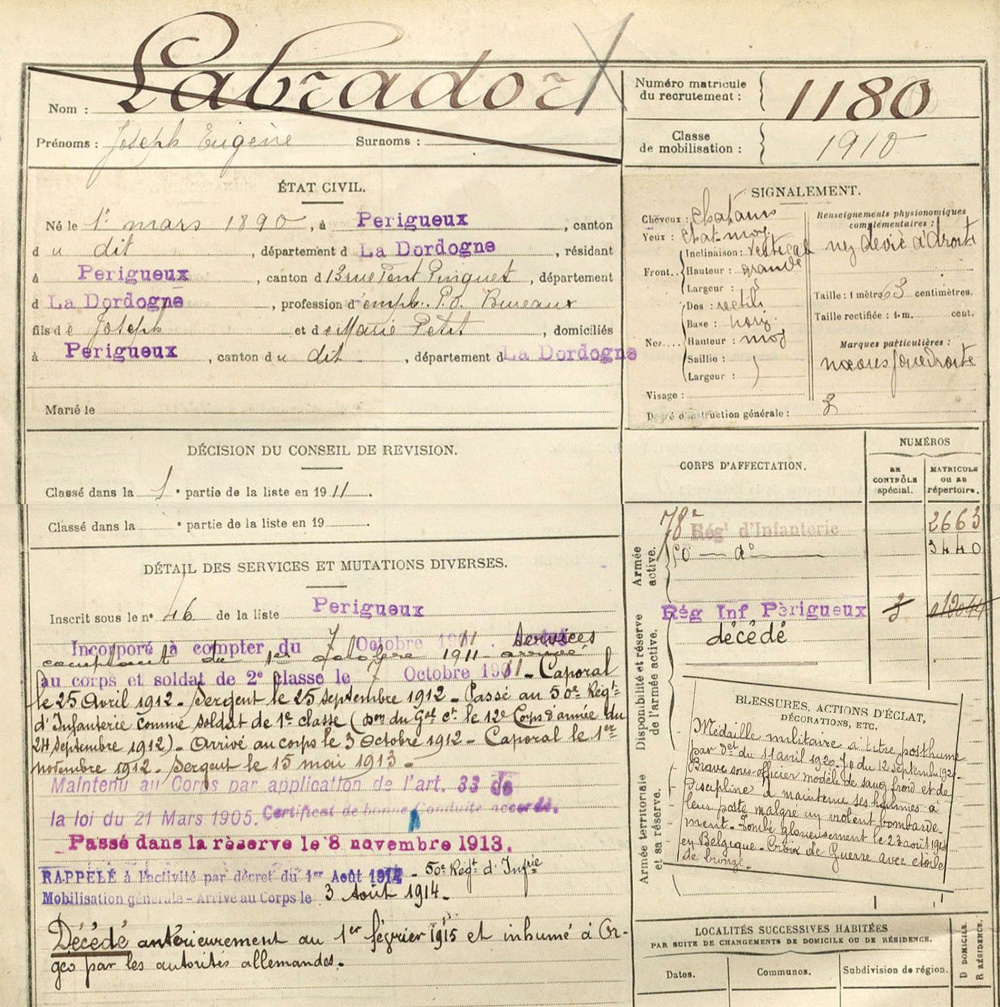 Labrador
Nom :
Prénoms : Joseph Eugène Surnoms :
Numéro matricule
du recrutement : 1180
Classe
de mobilisation : 1910
ÉTAT CIVIL.
Né le 1er mars 1890, à Perigueux, canton
du dit, département d La Dordogne, résidant
à Perigueux, canton d 13 rue Font Pinquet, département
d La Dordogne, profession d'empl. P.O. Bureaux
fils de Joseph et de Marie Petit, domiciliés
à Perigueux, canton du dit, département d La Dordogne
Marié le
SIGNALEMENT.
Cheveux : chatains
Yeux : chat. moy
Front. Inclinaison : vertical
Hauteur : grande
Largeur :
Nez. Dos : rectil.
Base : horiz.
Hauteur : moy
Saillie :
Largeur :
Visage :
Degré d'instruction générale : 3
Renseignements physionomiques
complémentaires :
nez dévié à droite
Taille : 1 mètre 63 centimètres.
Taille rectifiée : 1 m. cent.
Marques particulières :
joue droite
DÉCISION DU CONSEIL DE REVISION.
Classé dans la 1e partie de la liste en 1911.
Classé dans la e partie de la liste en 19
DÉTAIL DES SERVICES ET MUTATIONS DIVERSES.
Inscrit sous le n° 46 de la liste Perigueux
Incorporé à compter du 7 Octobre 1911 services
comptant du 1er Octobre 1911 arrivé
au corps et soldat de 2e classe le 7 Octobre 1911. Caporal
le 25 Avril 1912 - Sergent le 25 septembre 1912 - Passé au 50e Régt
d'Infanterie comme soldat de 1e classe ( du Gal Ct. le 12e Corps d'armée du
24 septembre 1912) - Arrivé au corps le 3 Octobre 1912 - Caporal le 1er
novembre 1912. Sergent le 15 mai 1913. -
Maintenu au Corps par application de l'art. 33 de
la loi du 21 Mars 1905. Certificat de bonne Conduite accordé.
Passé dans la rèserve le 8 novembre 1913.
RAPPELÉ à l'activité par décret du 1er Août 1914 - 50e Régt d'Infrie
Mobilisation générale - Arrivé au Corps le 3 Août 1914.
Décédé antérieurement au 1er février 1915 et inhumé à Or-
geo par les autorités allemandes.
CORPS D'AFFECTATION.
NUMÉROS
AU
CONTRÔLE
spécial.
MATRICULE
OU AU
répertoire.
Armée
active.
78e Régt d'Infanterie 2663
50 - do 3440
Disponibilité et réserve
de l'armée active.
Rég Inf Pèrigueux
décédé
Armée territoriale
et sa réserve.
BLESSURES, ACTIONS D'ÉCLAT,
DÉCORATIONS, ETC.
Médaille militaire à titre posthume
par Dct du 11 avril 1920 J.O du 12 septembre 1920
Brave sous-officier modèle de sang froid et de
Discipline a maintenu ses hommes à
leur poste malgré un violent bombarde-
ment. Tombé glorieusement le 22 août 1914
en Belgique - Croix de Guerre avec étoile
de bronze.
LOCALITÉS SUCCESSIVES HABITÉES
PAR SUITE DE CHANGEMENTS DE DOMICILE OU DE RÉSIDENCE.
Dates.
Communes.
Subdivision de région.
D. DOMICILE.
R. RÉSIDENCE.